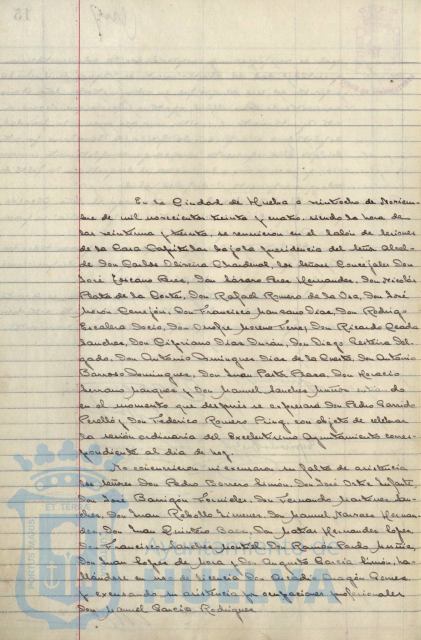 En la Ciudad de Huelva a veintiocho de Noviem-
bre de mil novecientos treinta y cuatro, siendo la hora de
las veintiuna y treinta, se reunieron en el Salón de sesiones
de la Casa Capitular bajo la presidencia del Señor Alcal-
de Don Carlos Oliveira Chardenal, los señores Concejales Don
José Lozcano Don Hernandez, Don Nicolás
Plata de la Corte, Don Rafael Romero de la Osa, Don José
Morón Don Francisco Manzano Diaz, Don Rodrigo
Escalera Don Onofre Moreno Don Ricardo
Sanchez, Don Cipriano Diaz Durán, Don Diego Cortina Del-
gado, Don Antonio Dominguez Diaz de la Cuesta, Don Antonio
Barroso Dominguez, Don Juan Don Horacio
Serrano Marquez y Don Manuel Sanchez Muñoz
en el momento que después se expresará Don Pedro Garrido
Perelló y Don Federico Romero con objeto de celebrar
la sesión ordinaria del Excelentísimo Ayuntamiento corres-
pondiente al dia de hoy.
No concurrieron ni excusaron su falta de asistencia
los señores Don Pedro Borrero Limón, Don José Infante,
Don José Barrigón Don Fernando Martinez San-
chez, Don Juan Rebollo Jimenez, Don Manuel Navarro Hernan-
dez, Don Juan Quintero Baez, Don Matias Hernandez Lopez
Don Francisco Sanchez Don Ramón Pardo
Don Juan Lopez de Mora y Don Augusto García Limón; ha-
llándose en uso de licencia Don Arcadio Aragón Gomez
y excusando su asistencia por ocupaciones profesionales
Don Manuel García Rodriguez